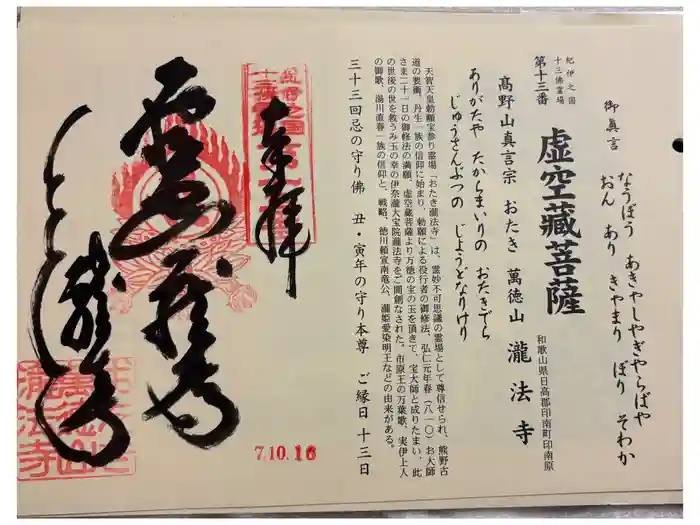 御眞言
なうぼう あきやしやぎやらばや
おん あり きやまり ぼり そわか
紀伊之国
十三佛霊場
第十三番
虚空藏菩薩
和歌山県日高郡印南町印南原
高野山真言宗 おたき 萬徳山 瀧法寺
ありがたや たからまいりの おたきでら
じゅうさんぶつの じようどなりけり
天智天皇勅願宝参り霊場「おたき瀧法寺」は、霊妙不可思議の霊場として尊信せられ、熊野古
道の要衝、丹生一族の信仰に始まり、勅願による役行者の御修法、弘仁元年春(八一〇)お大師
さま二十一日の御修法の満願、虚空蔵菩薩より万徳の宝の玉を頂きて、宝大師と成りたまい、此
の世後の世を救うみ玉の幸の伊奈瀧大宝院瀧法寺をご開創なされた。市原王の万葉歌、実伊上人
の御歌、湯川直春一族の信仰と、戦略、徳川頼宣南竜公、瀧姫愛染明王などの由来がある。
三十三回忌の守り佛 丑・寅年の守り本尊 ご縁日 十三日
奉拝
7.10.16
瀧法寺